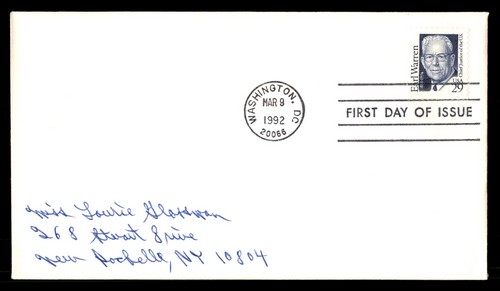 Earl Warren
Chief Justice of the U.S.
USA
29
WASHINGTON, DC
MAR 9
1992
20066
FIRST DAY OF ISSUE
Miss Laurie Glassman
268 Stuart Drive
New Rochelle, NY 10804